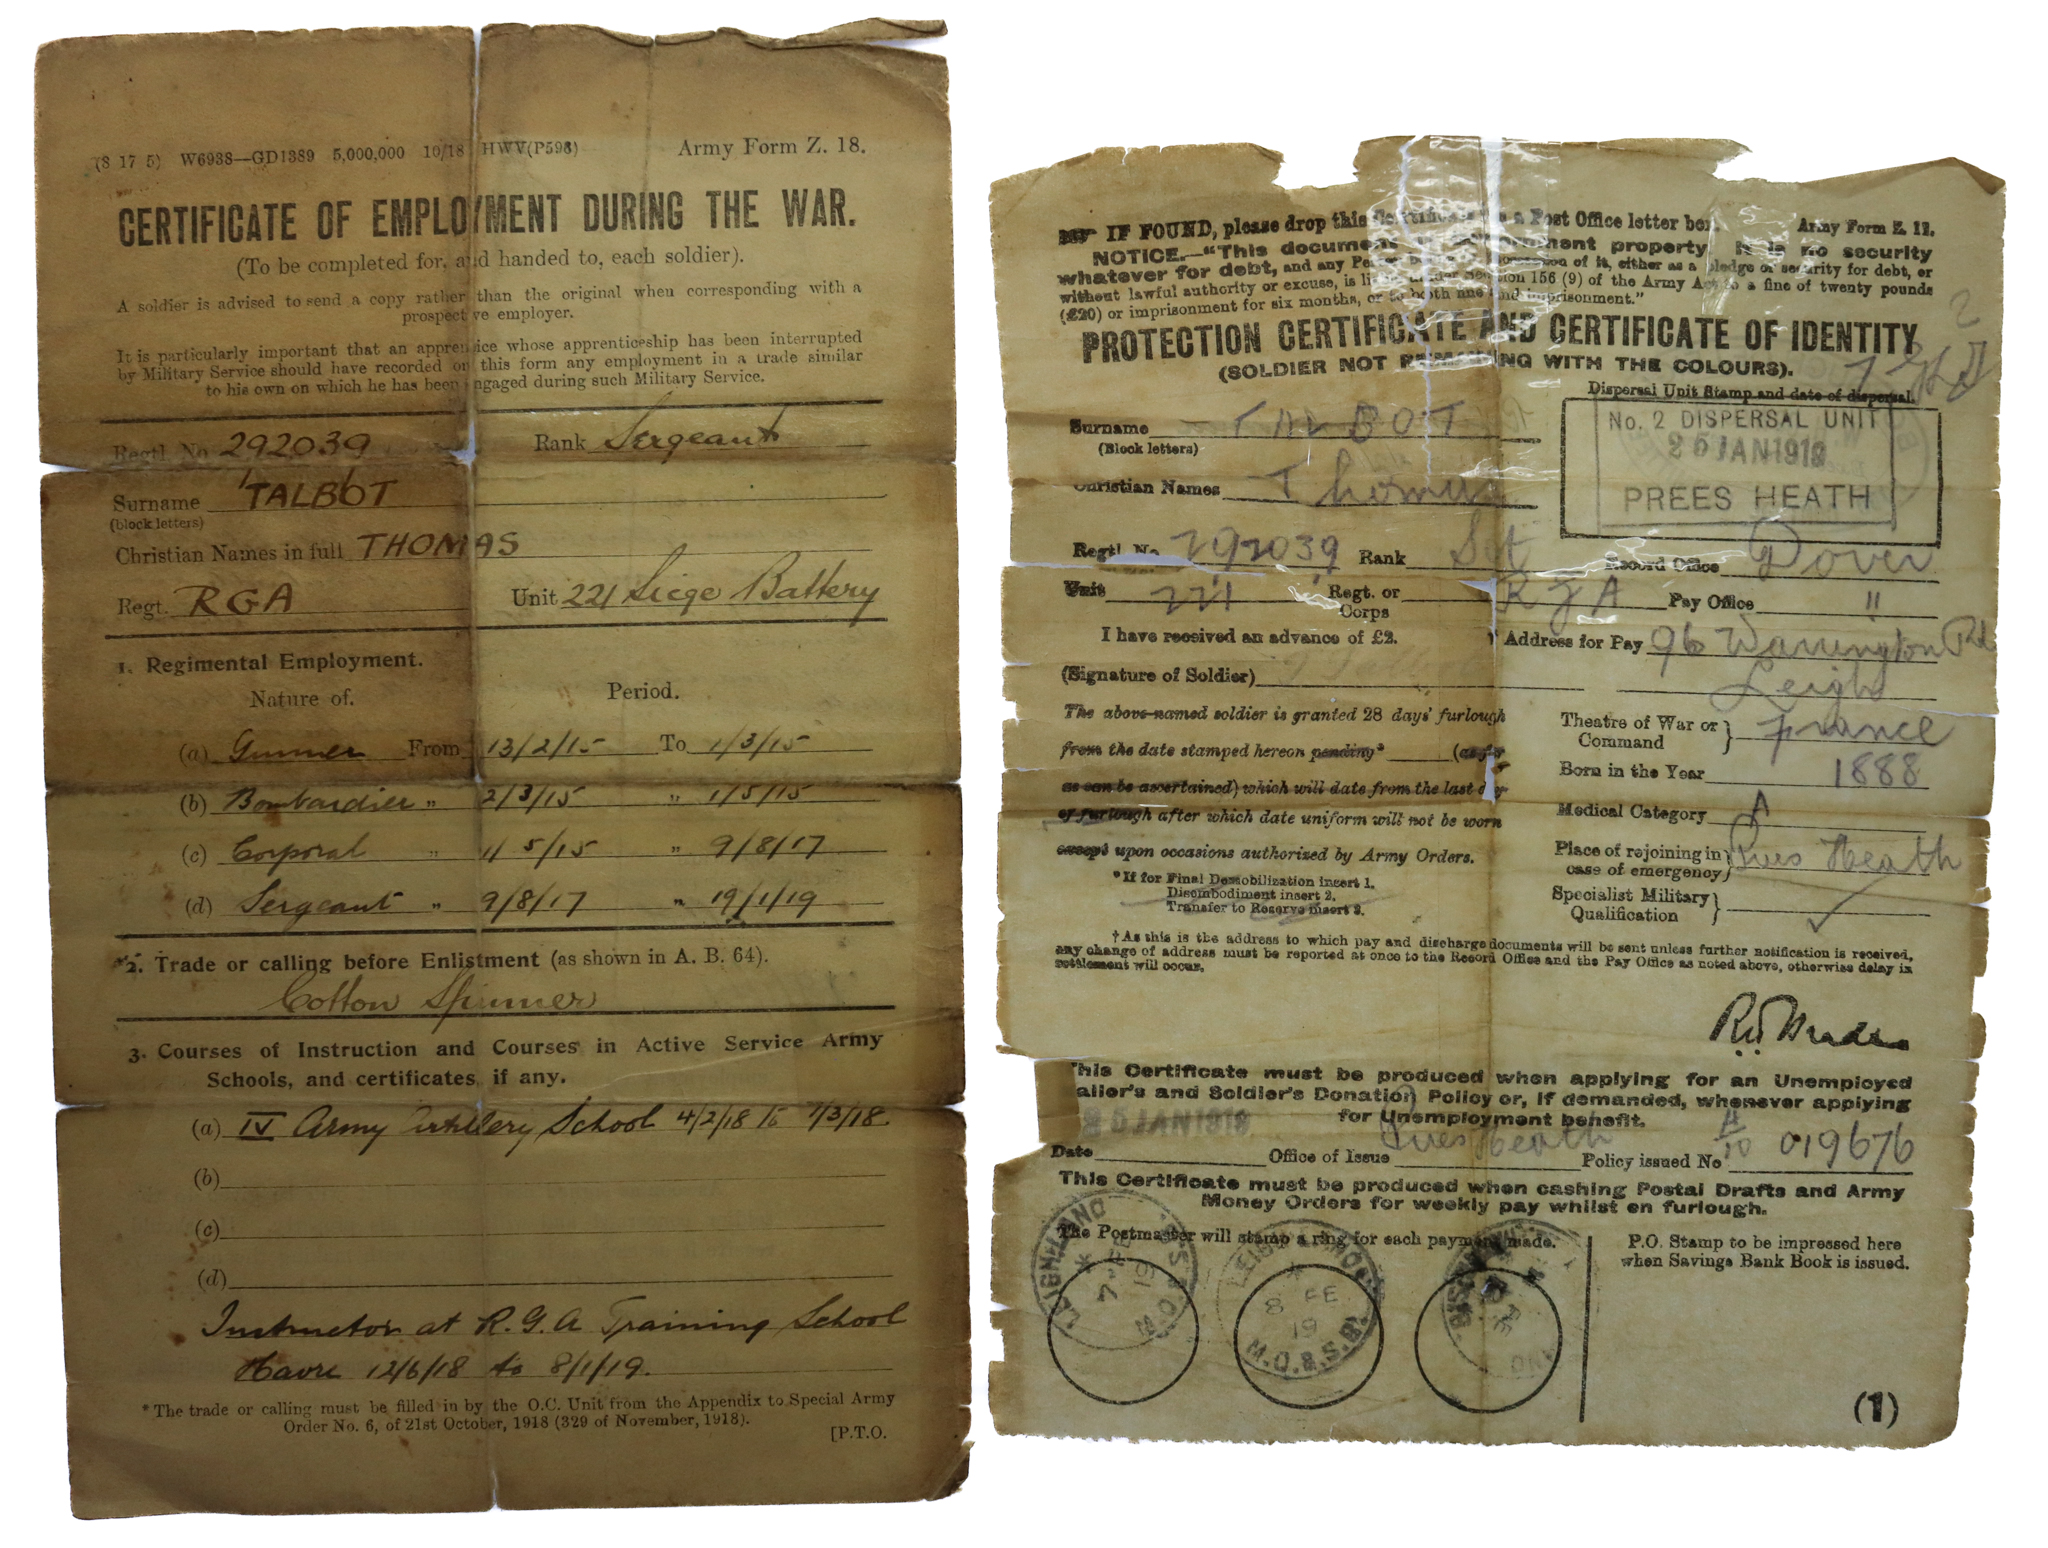 (8 17 5) W6938—GD1389 5,000,000 10/18 HWV(P598) Army Form Z. 18.
CERTIFICATE OF EMPLOYMENT DURING THE WAR.
(To be completed for, and handed to, each soldier).
A soldier is advised to send a copy rather than the original when corresponding with a
prospective employer.
It is particularly important that an apprentice whose apprenticeship has been interrupted
by Military Service should have recorded on this form any employment in a trade similar
to his own on which he has been engaged during such Military Service.
Regtl. No 292039 Rank Sergeant
Surname TALBOT
(block letters)
Christian Names in full THOMAS
Regt. RGA Unit 221 Siege Battery
1. Regimental Employment.
Nature of. Period.
(a) Gunner From 13/2/15 To 1/3/15
(b) Bombardier „ 2/3/15 „ 1/5/15
(c) Corporal „ 1/5/15 „ 9/8/17
(d) Sergeant „ 9/8/17 „ 19/1/19
*2. Trade or calling before Enlistment (as shown in A. B. 64).
Cotton Spinner
3. Courses of Instruction and Courses in Active Service Army
Schools, and certificates, if any.
(a) IV Army Artillery School 4/2/18 to 7/3/18
(b)
(c)
(d)
Instructor at R.G.A Training School
Havre 12/6/18 to 8/1/19.
*The trade or calling must be filled in by the O.C. Unit from the Appendix to Special Army
Order No. 6, of 21st October, 1918 (329 of November, 1918).
[P.T.O.
IF FOUND, please drop this Certificate in a Post Office letter box. Army Form Z. 11.
NOTICE.—"This document is Government property. It is no security
whatever for debt, and any Person being in possession of it, either as a pledge or security for debt, or
without lawful authority or excuse, is liable under Section 156 (9) of the Army Act to a fine of twenty pounds
(£20) or imprisonment for six months, or to both fine and imprisonment."
PROTECTION CERTIFICATE AND CERTIFICATE OF IDENTITY
(SOLDIER NOT REMAINING WITH THE COLOURS).
Dispersal Unit Stamp and date of dispersal.
No. 2 DISPERSAL UNIT
25 JAN 1919
PREES HEATH
Surname TALBOT
(Block letters)
Christian Names Thomas
Regtl. No. 292039 Rank Sgt Record Office Dover
Unit 221 Regt. or Corps RGA Pay Office "
I have received an advance of £2. † Address for Pay 96 Warrington Rd
(Signature of Soldier) Leigh
The above-named soldier is granted 28 days' furlough
from the date stamped hereon pending* (as far
as can be ascertained) which will date from the last day
of furlough after which date uniform will not be worn
except upon occasions authorized by Army Orders.
*If for Final Demobilization insert 1.
Disembodiment insert 2.
Transfer to Reserve insert 3.
Theatre of War or Command France
Born in the Year 1888
Medical Category A
Place of rejoining in case of emergency Prees Heath
Specialist Military Qualification
†As this is the address to which pay and discharge documents will be sent unless further notification is received,
any change of address must be reported at once to the Record Office and the Pay Office as noted above, otherwise delay in
settlement will occur.
This Certificate must be produced when applying for an Unemployed
Sailor's and Soldier's Donation Policy or, if demanded, whenever applying
for Unemployment benefit.
25 JAN 1919
Date Office of Issue Prees Heath Policy issued No A/10 019676
This Certificate must be produced when cashing Postal Drafts and Army
Money Orders for weekly pay whilst on furlough.
The Postmaster will stamp a ring for each payment made.
P.O. Stamp to be impressed here
when Savings Bank Book is issued.
7 FE 19
8 FE 19
M.O.&S.B.
(1)